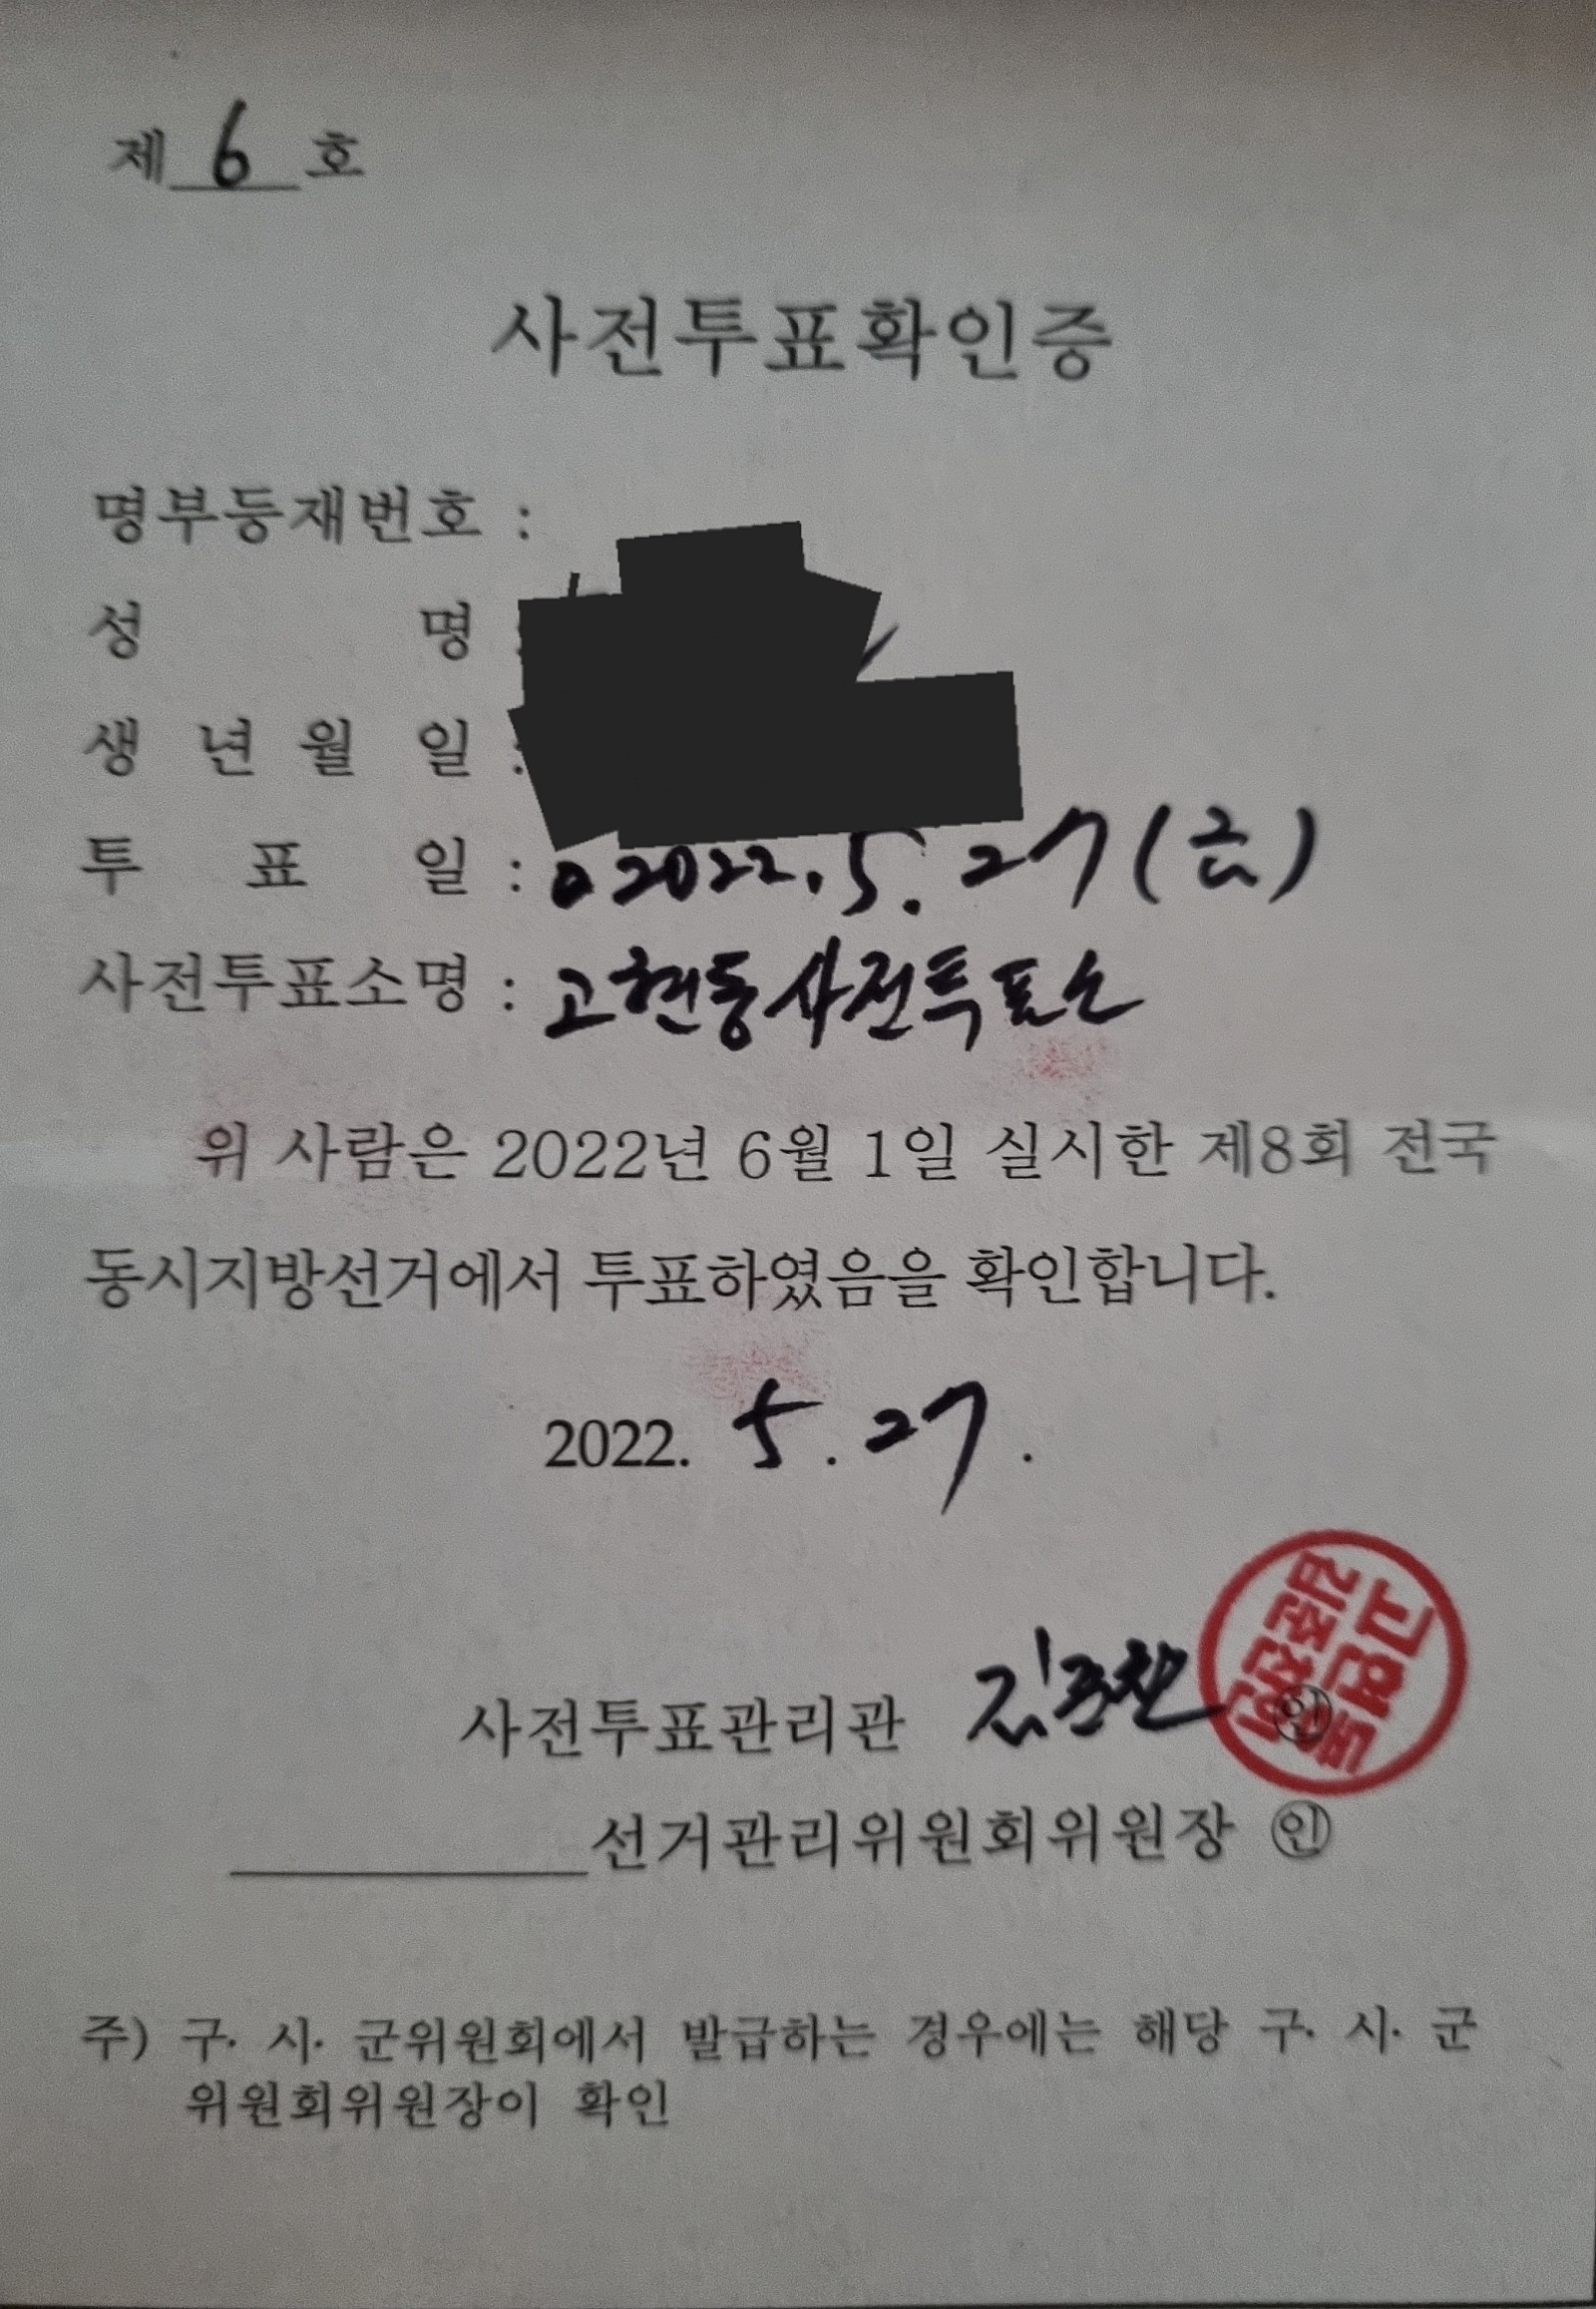 제 6 호
사전투표확인증
명부등재번호 :
성 명 :
생 년 월 일 :
투 표 일 : 2022. 5. 27 (금)
사전투표소명 : 고현동사전투표소
위 사람은 2022년 6월 1일 실시한 제8회 전국
동시지방선거에서 투표하였음을 확인합니다.
2022. 5 . 27 .
사전투표관리관 김준찬 ㉑
고현동
김준찬인
선거관리위원회위원장 ㊞
주) 구· 시· 군위원회에서 발급하는 경우에는 해당 구· 시· 군
위원회위원장이 확인